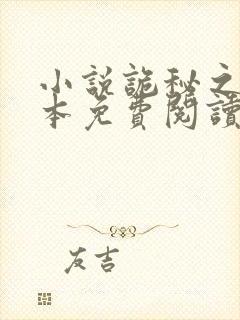 小説詭秘之
本免費閱讀
友吉